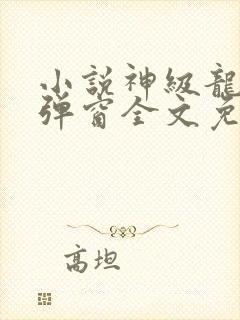 小説神級龍
弾窗全文免
高坦